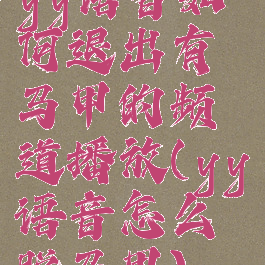 yy语音如
何退出有
马甲的频
道播放(yy
语音怎么
马甲)